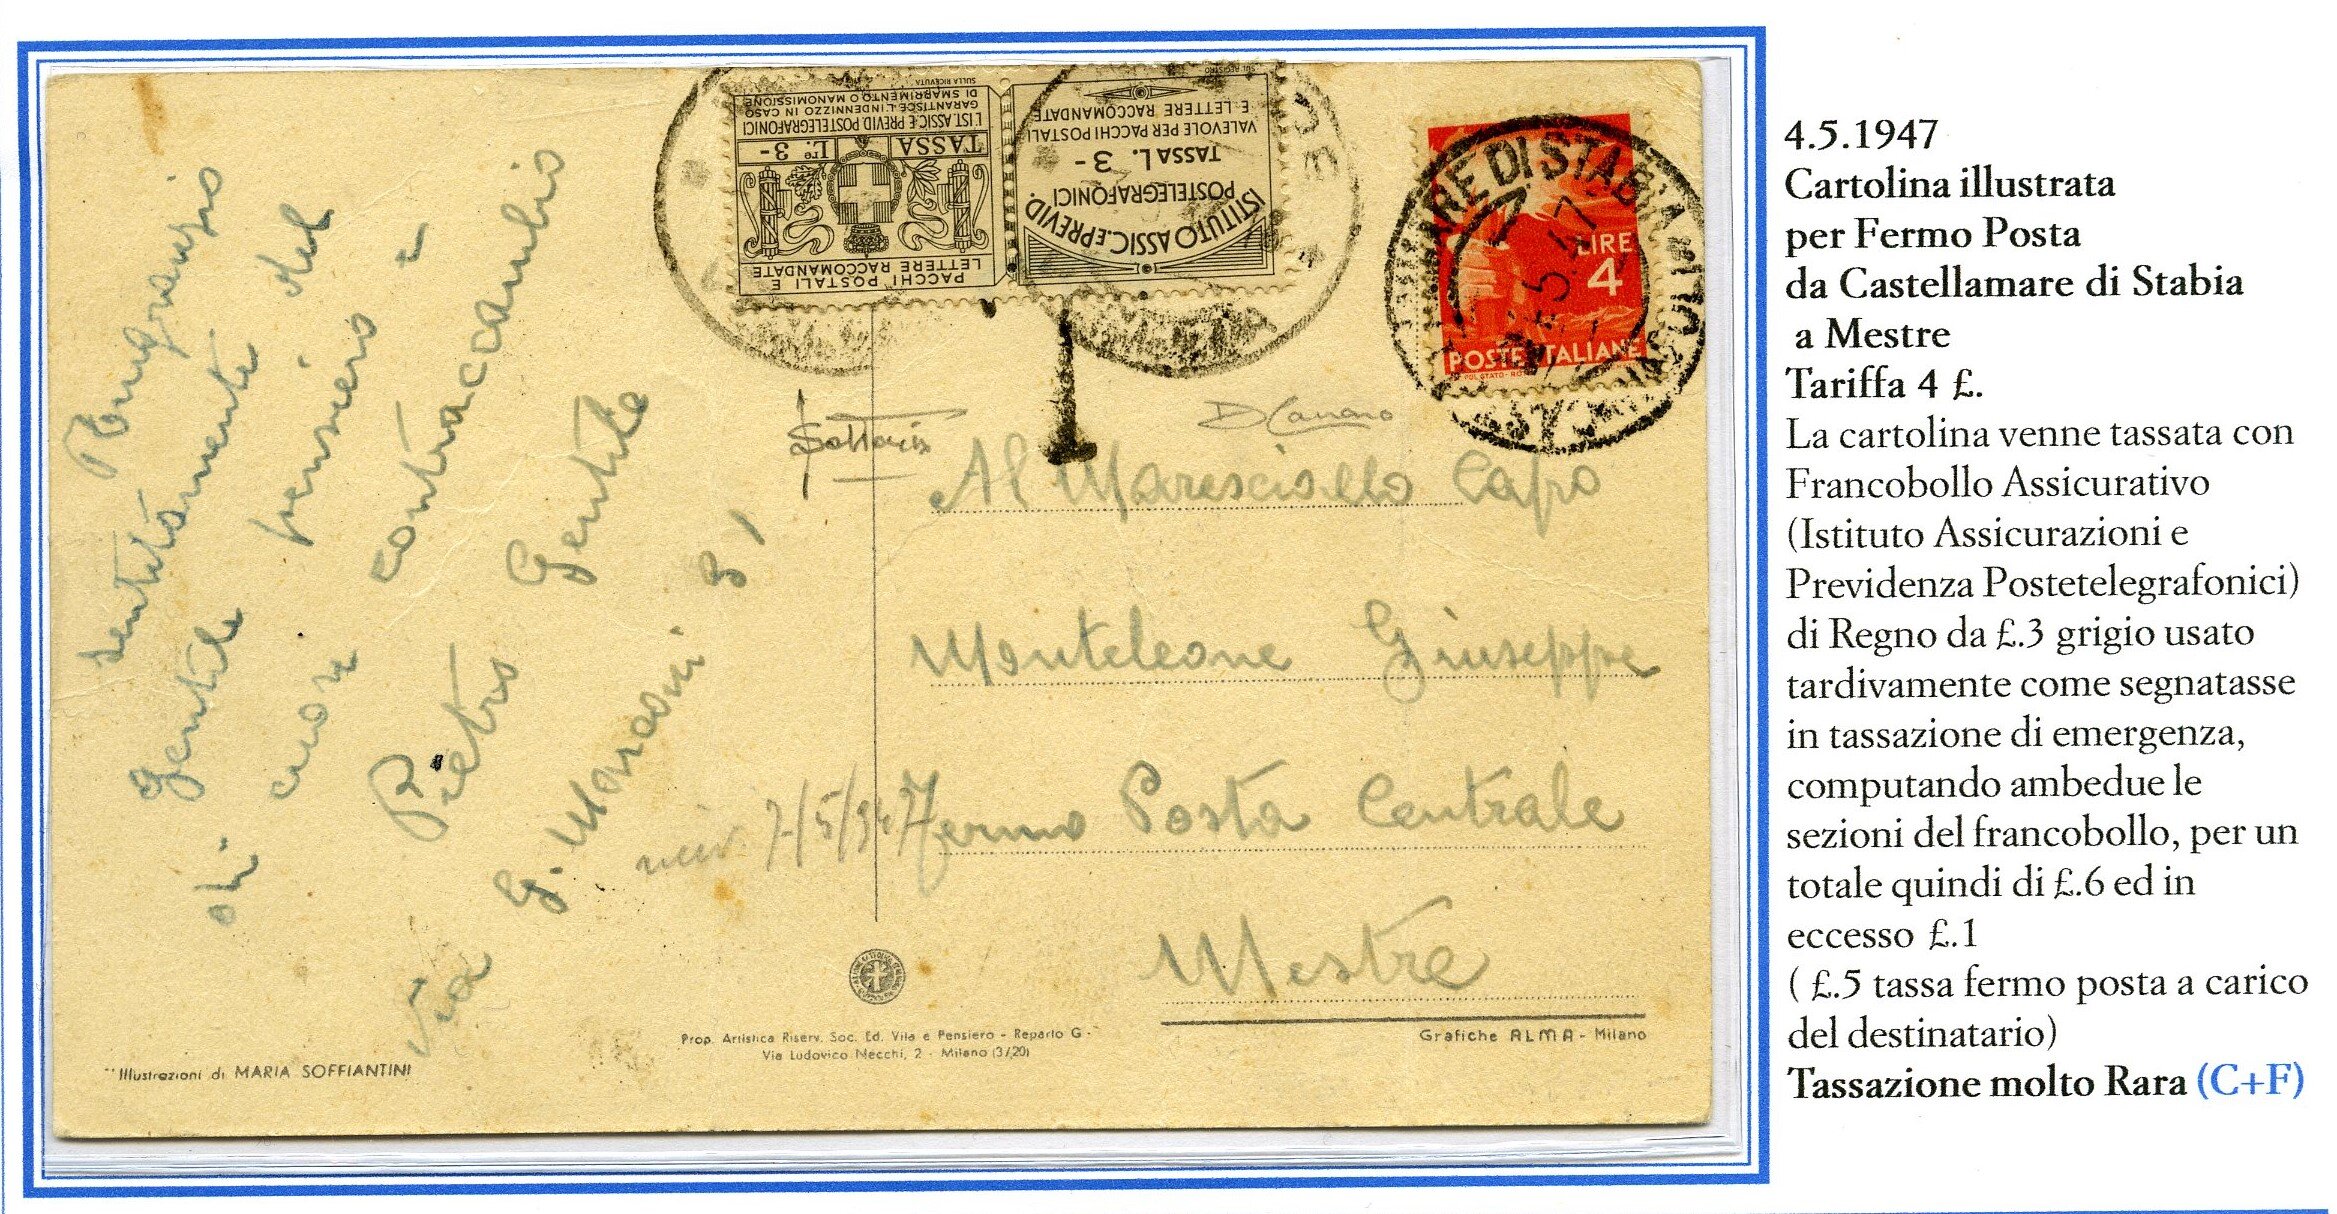 Ringrazio
sentitamente
gentile
del
di cuore
pensiero e
contraccambio
Pietro Gentile
Via G. Marconi 31
PACCHI POSTALI E
LETTERE RACCOMANDATE
TASSA Lre 3-
L'IST. ASSIC. E PREVID. POSTELEGRAFONICI
GARANTISCE L'INDENNIZZO IN CASO
DI SMARRIMENTO O MANOMISSIONE
SULLA RICEVUTA
ISTITUTO ASSIC. E PREVID.
POSTELEGRAFONICI
TASSA L. 3-
VALEVOLE PER PACCHI POSTALI
E LETTERE RACCOMANDATE
SUL REGISTRO
T
LIRE
4
POSTE ITALIANE
MARE DI STABIA
5.47
Al Maresciallo Capo
Monteleone Giuseppe
Fermo Posta Centrale
Mestre
7/5/947
Prop. Artistica Riserv. Soc. Ed. Vita e Pensiero - Reparto G -
Via Ludovico Necchi, 2 - Milano (3/20)
Grafiche ALMA - Milano
Illustrazioni di MARIA SOFFIANTINI
4.5.1947
Cartolina illustrata
per Fermo Posta
da Castellamare di Stabia
a Mestre
Tariffa 4 £.
La cartolina venne tassata con
Francobollo Assicurativo
(Istituto Assicurazioni e
Previdenza Postetelegrafonici)
di Regno da £.3 grigio usato
tardivamente come segnatasse
in tassazione di emergenza,
computando ambedue le
sezioni del francobollo, per un
totale quindi di £.6 ed in
eccesso £.1
( £.5 tassa fermo posta a carico
del destinatario)
Tassazione molto Rara (C+F)